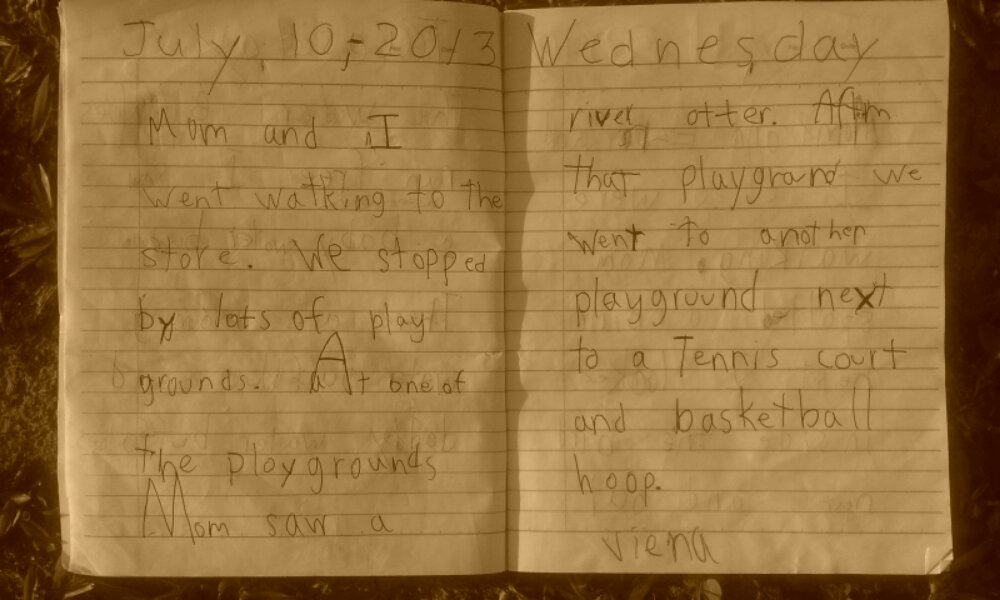 July, 10, 2013
Mom and I
went walking to the
store. We stopped
by lots of play
grounds. At one of
the playgrounds
Mom saw a
Wednesday
river otter. Aftrn
that playground we
went to another
playground next
to a Tennis court
and basketball
hoop.
viena